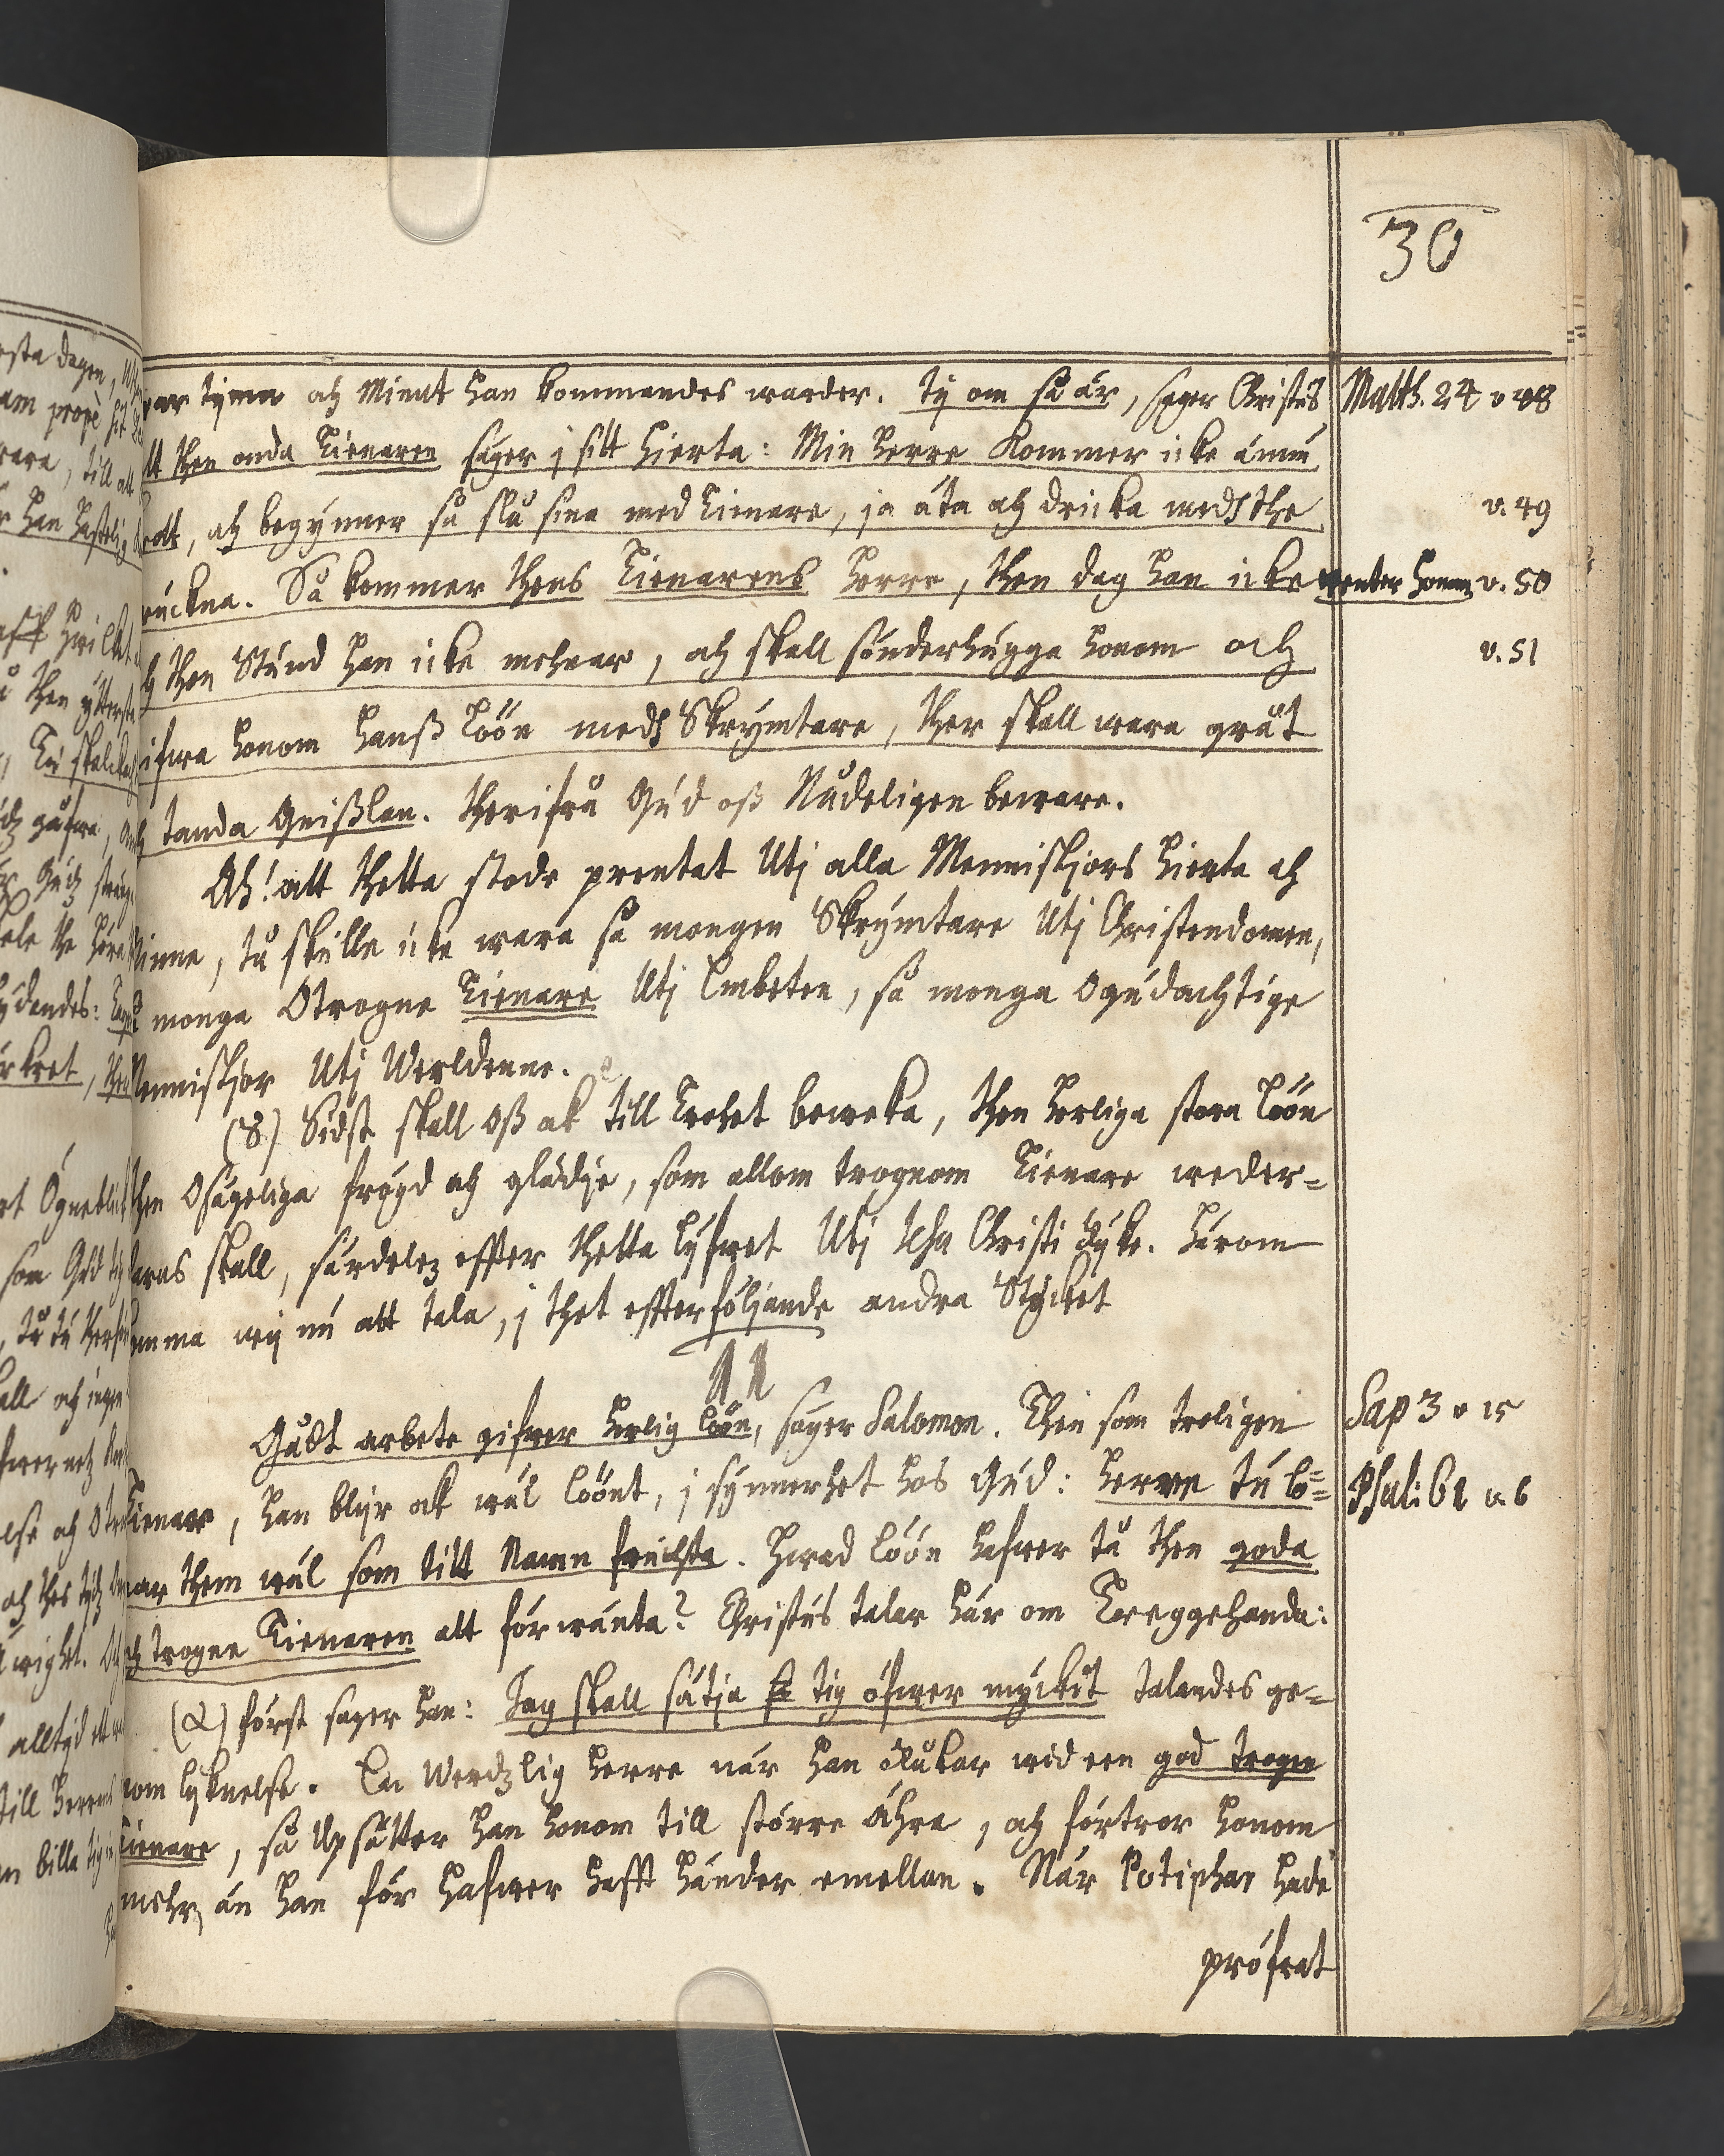 30
war tijma och Minut han kommandes warder. Ty om så är, seger Christus Matth. 24 v 48
att then onda Tienaren säger j sitt Hierta: Min Herre kommer icke ännu
bratt, och begynner så slå sina med Tienare, ja äta och dricka medh the v. 49
druckna. Så kommer thens Tienarens Herre, then dag han icke wenter honom v. 50
och then Stund han icke mehnar, och skall sönderhugga honom och v. 51
gifwa honom hanß löön medh Skrymtare, ther skall wara gråt
och tanda Gnißlan. Therifrå Gud oß Nådeligen beware.
Ach! att thetta stode prentat Utj alla Menniskjors Hierta och
Sinne, tå skulle icke wara så mongen Skrymtare Utj Christendomen,
så monga Otrogne Tienare Utj Embeten, så monga Ogudachtige
Menniskjor Utj Werldenne.
(8) Sidst skall oß ok till trohet beweka, then herliga stora löön
then Osägeliga frögd och glädje, som allom trognom Tienare weder=
faras skall, särdelez effter thetta lyfwet Utj Jesu Christi Ryke. Härom
komma wij nu att tala, j thet effterföljande andra Stycket
11
Gudt arbete gifwer herlig löön, säger Salomon. Then som troligen Sap 3 v 15
Tienar, han blijr ok wäl löönt, j synnerhet hos Gud: Herre tu lö= Psal: 61 v. 6
nar them wäl som titt Namn fruchta. Hwad löön hafwer tå then goda
och trogne Tienaren att förwänta? Christus talar här om Tweggehanda:
(α) först sager han: Jag skall sätja tig öfwer myckit talandes ge=
nom lyknelse. En Werdzlig Herre när han rlukar wid een god trogen
Tienare, så Upsätter han honom till större ähra, och förtror honom
mehr, än han för hafwer hafft händer emellan. När Potiphar hade
pröfwat